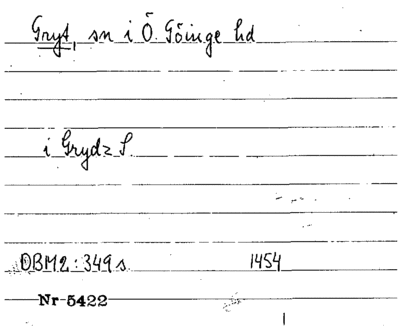 Gryt, sn i Ö. Göinge hd
i Grydz S.
ÖBM2:349 s. 1454
Nr 5422